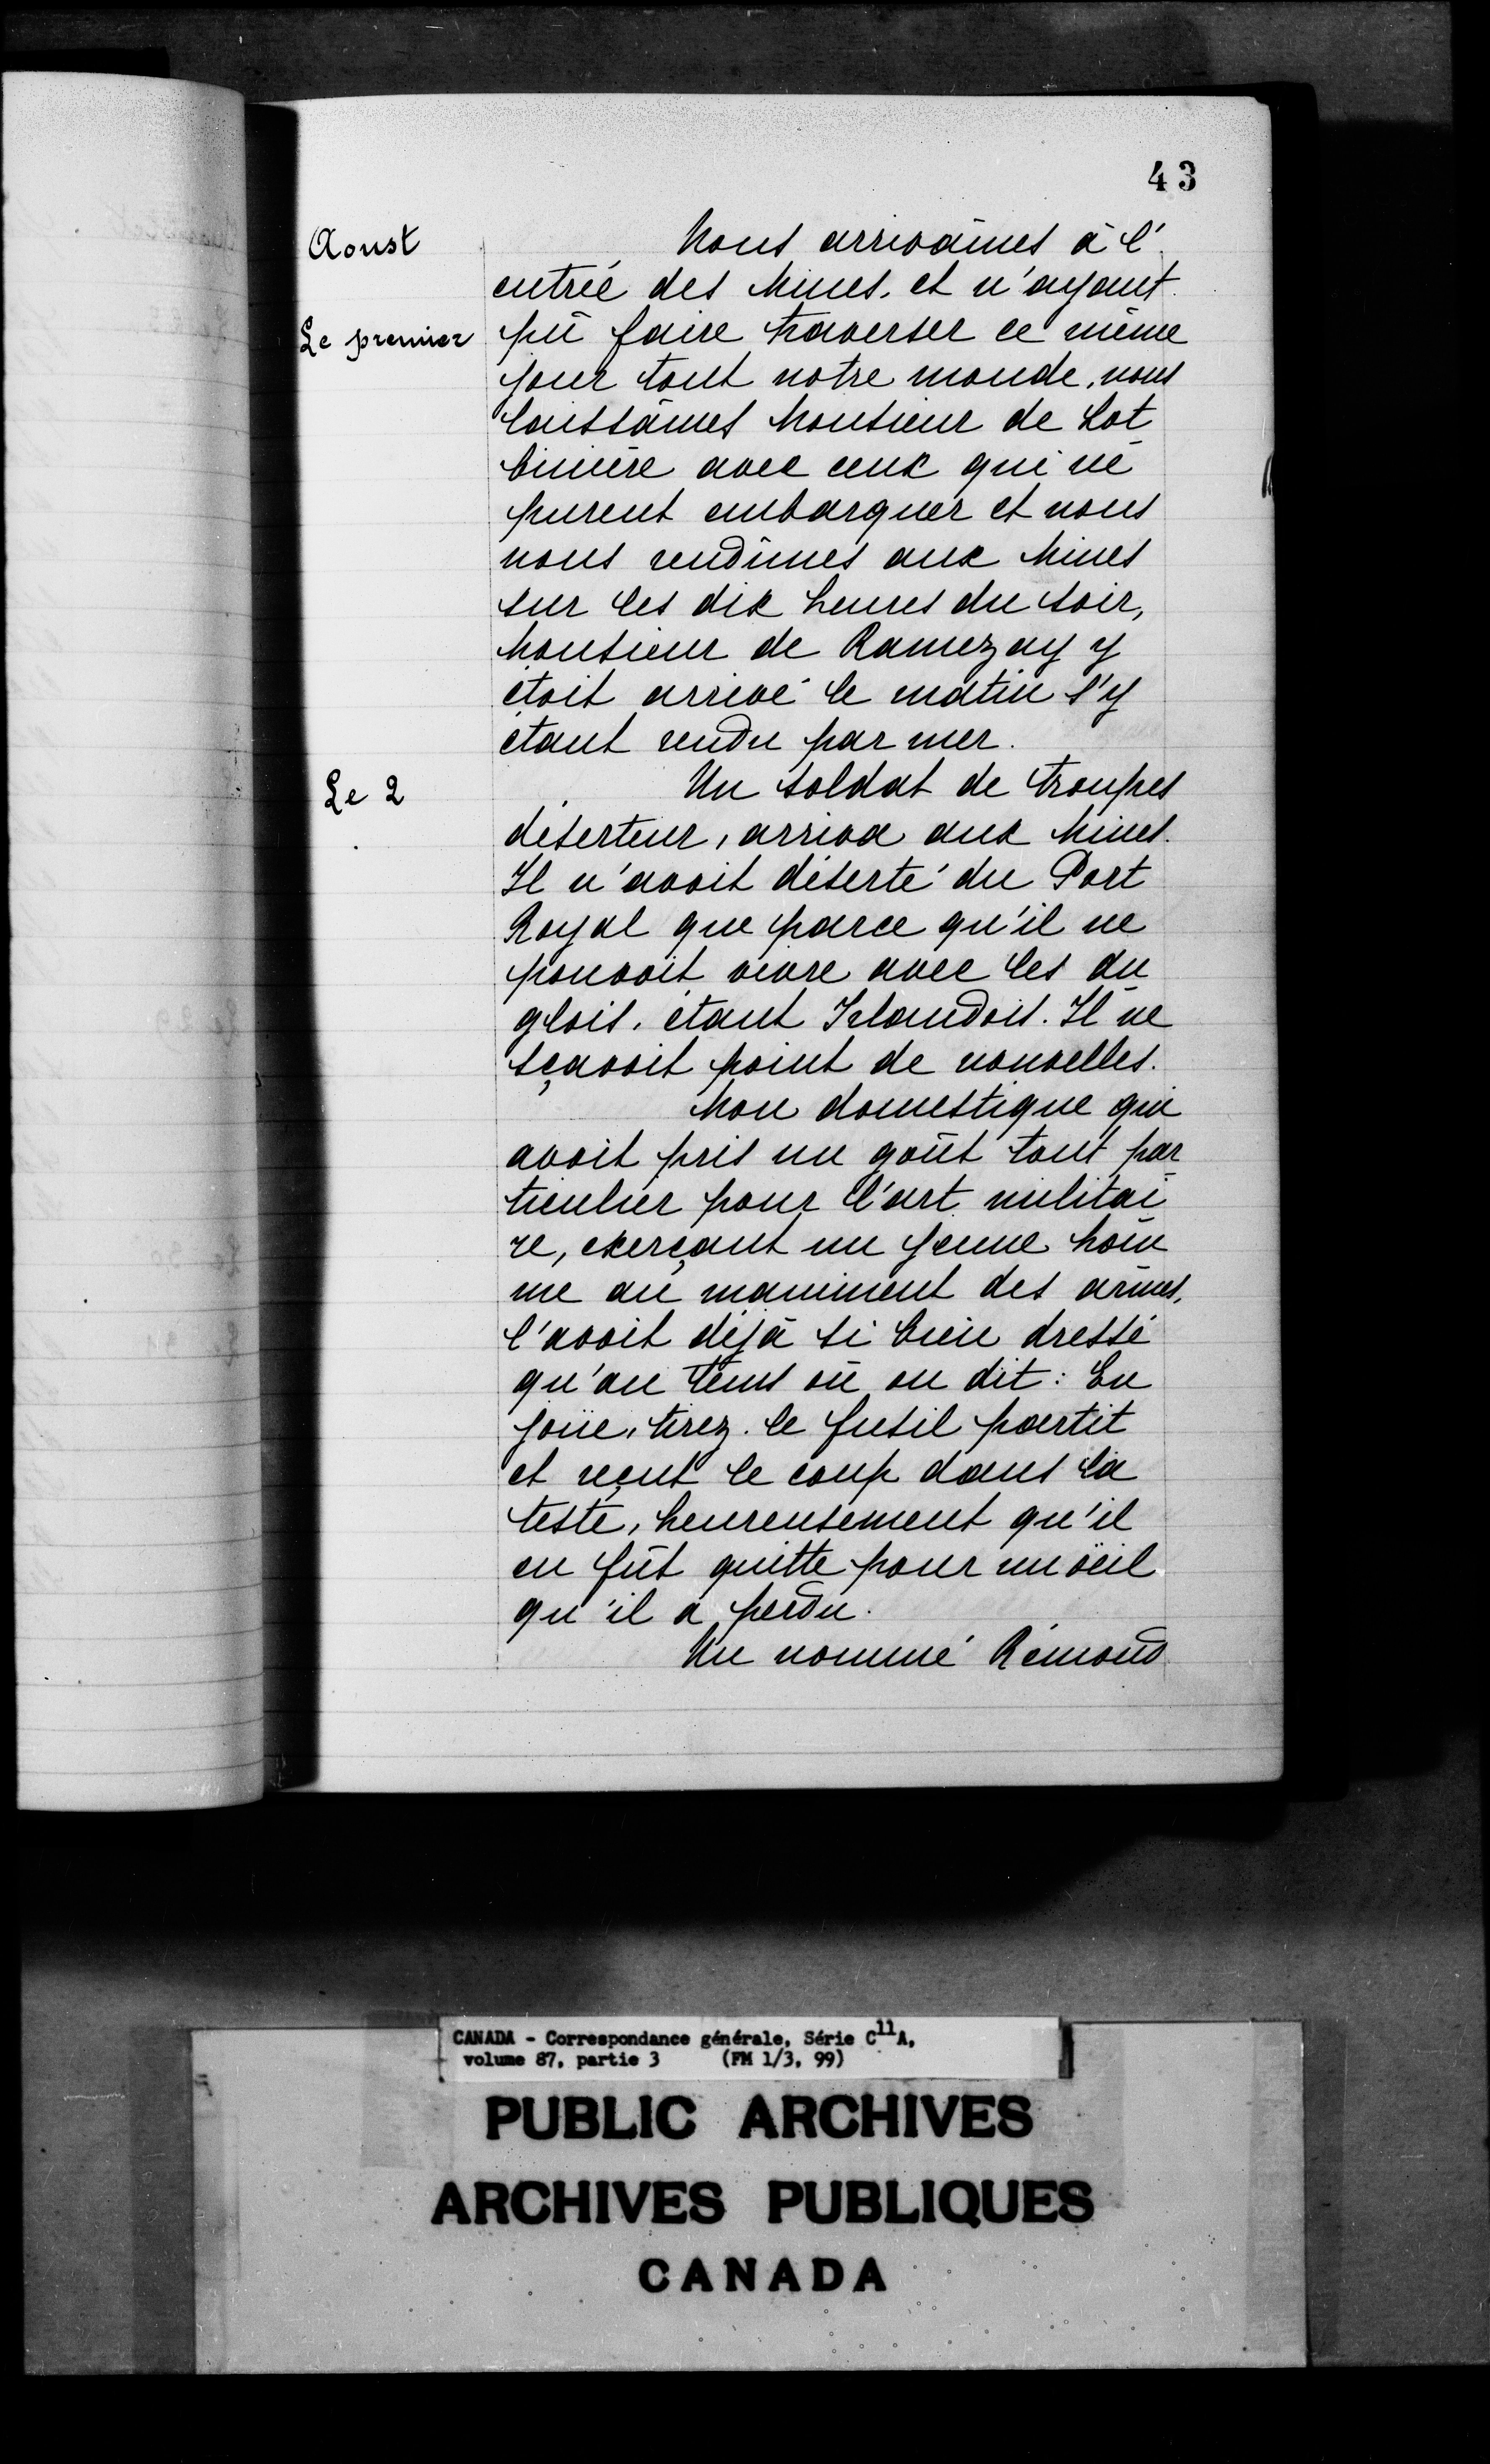 43
Aoust
Nous arrivâmes à l'
entrée des Mines, et n'ayant
Le premier
pû faire traverser ce même
jour tout notre monde, nous
laissâmes Monsieur de Lot
binière avec ceux qui ne
purent embarquer et nous
nous rendîmes aux Mines
sur les dix heures du soir,
Monsieur de Ramezay y
étoit arrivé le matin s'y
étant rendu par mer.
Le 2
Un soldat de troupes
déserteur, arriva aux Mines.
Il n'avoit déserté du Port
Royal que parce qu'il ne
pouvoit vivre avec les an
glois, étant Irlandois. Il ne
sçavoit point de nouvelles.
Mon domestique qui
avoit pris un goût tout par
ticulier pour l'art militai
re, exerçant un jeune hom
me au maniment des armes,
l'avoit déjà si bien dressé
qu'au tems où on dit: En
joüe, tirez. le fusil partit
et reçut le coup dans la
teste, heureusement qu'il
en fût quitte pour un oeil
qu'il a perdu.
Un nommé Rémond
CANADA - Correspondance générale, Série C11A,
volume 87, partie 3 (FM 1/3, 99)
PUBLIC ARCHIVES
ARCHIVES PUBLIQUES
CANADA